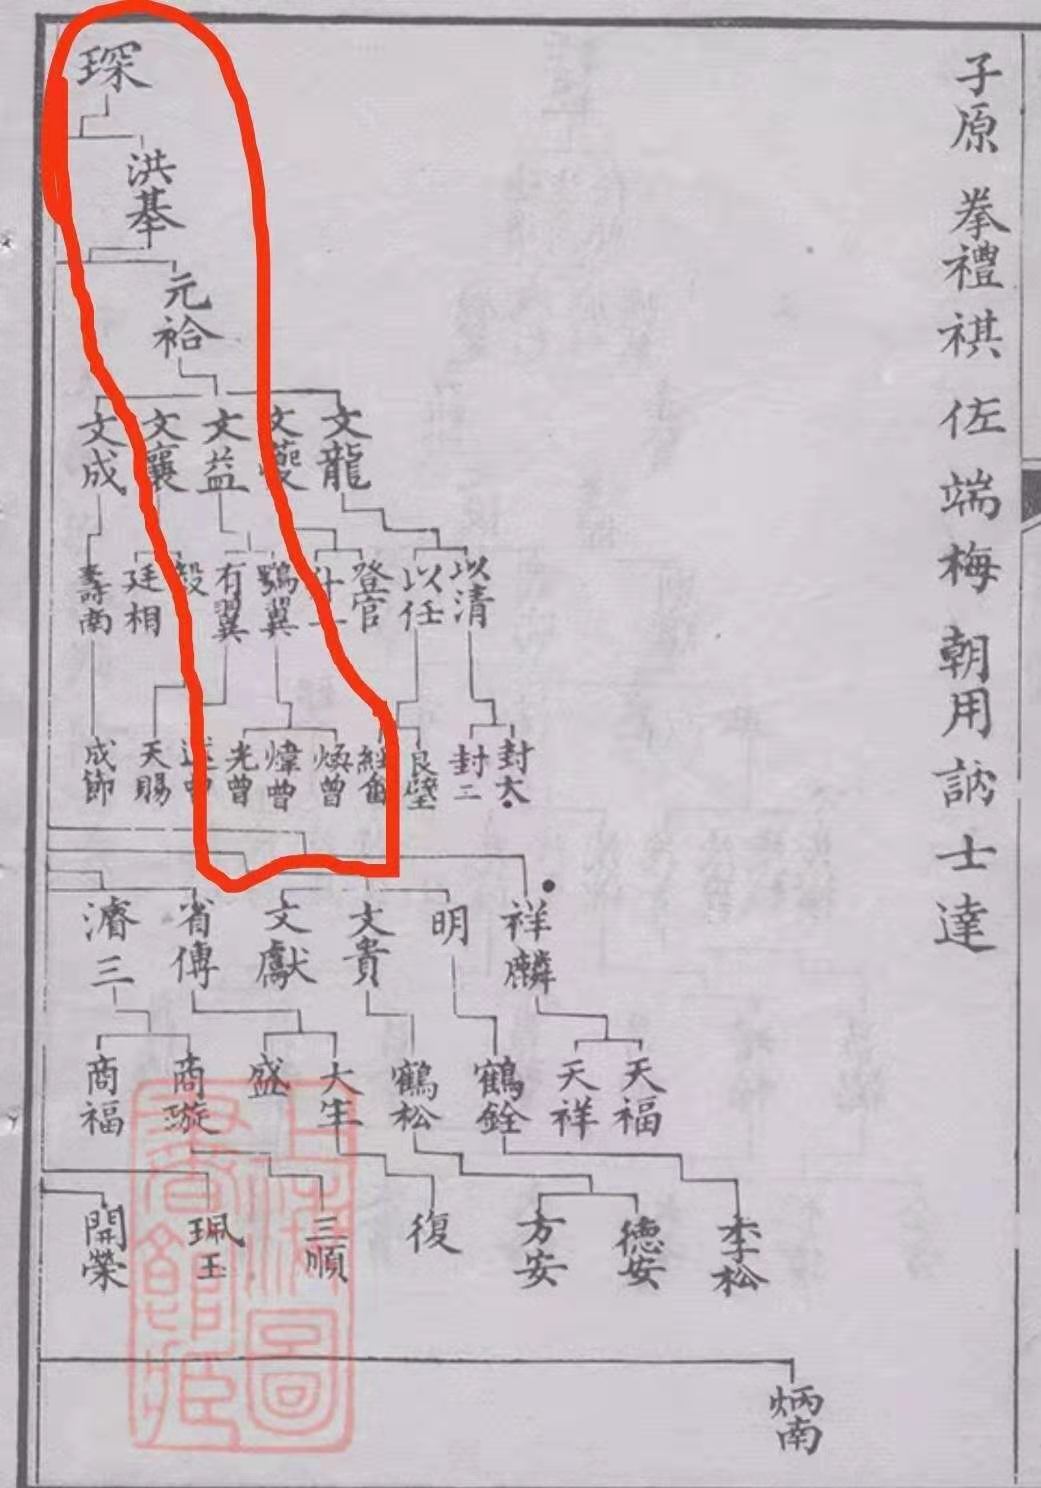 子原拳禮祺佐端梅朝用訥士達
琛
洪基
元袷
文龍
文夔
文益
文襄
文成
以清
以任
登官
什一
鶚翼
有翼
毅
廷相
壽南
封大
封二
良壁
煥曾
煒曾
光曾
天賜
成節
祥麟
明
文貴
文獻
省傳
濬三
天福
天祥
鶴銓
鶴松
大年
盛
商璇
商福
李松
德安
方安
復
三順
珮玉
開榮
炳南
上海圖書館藏